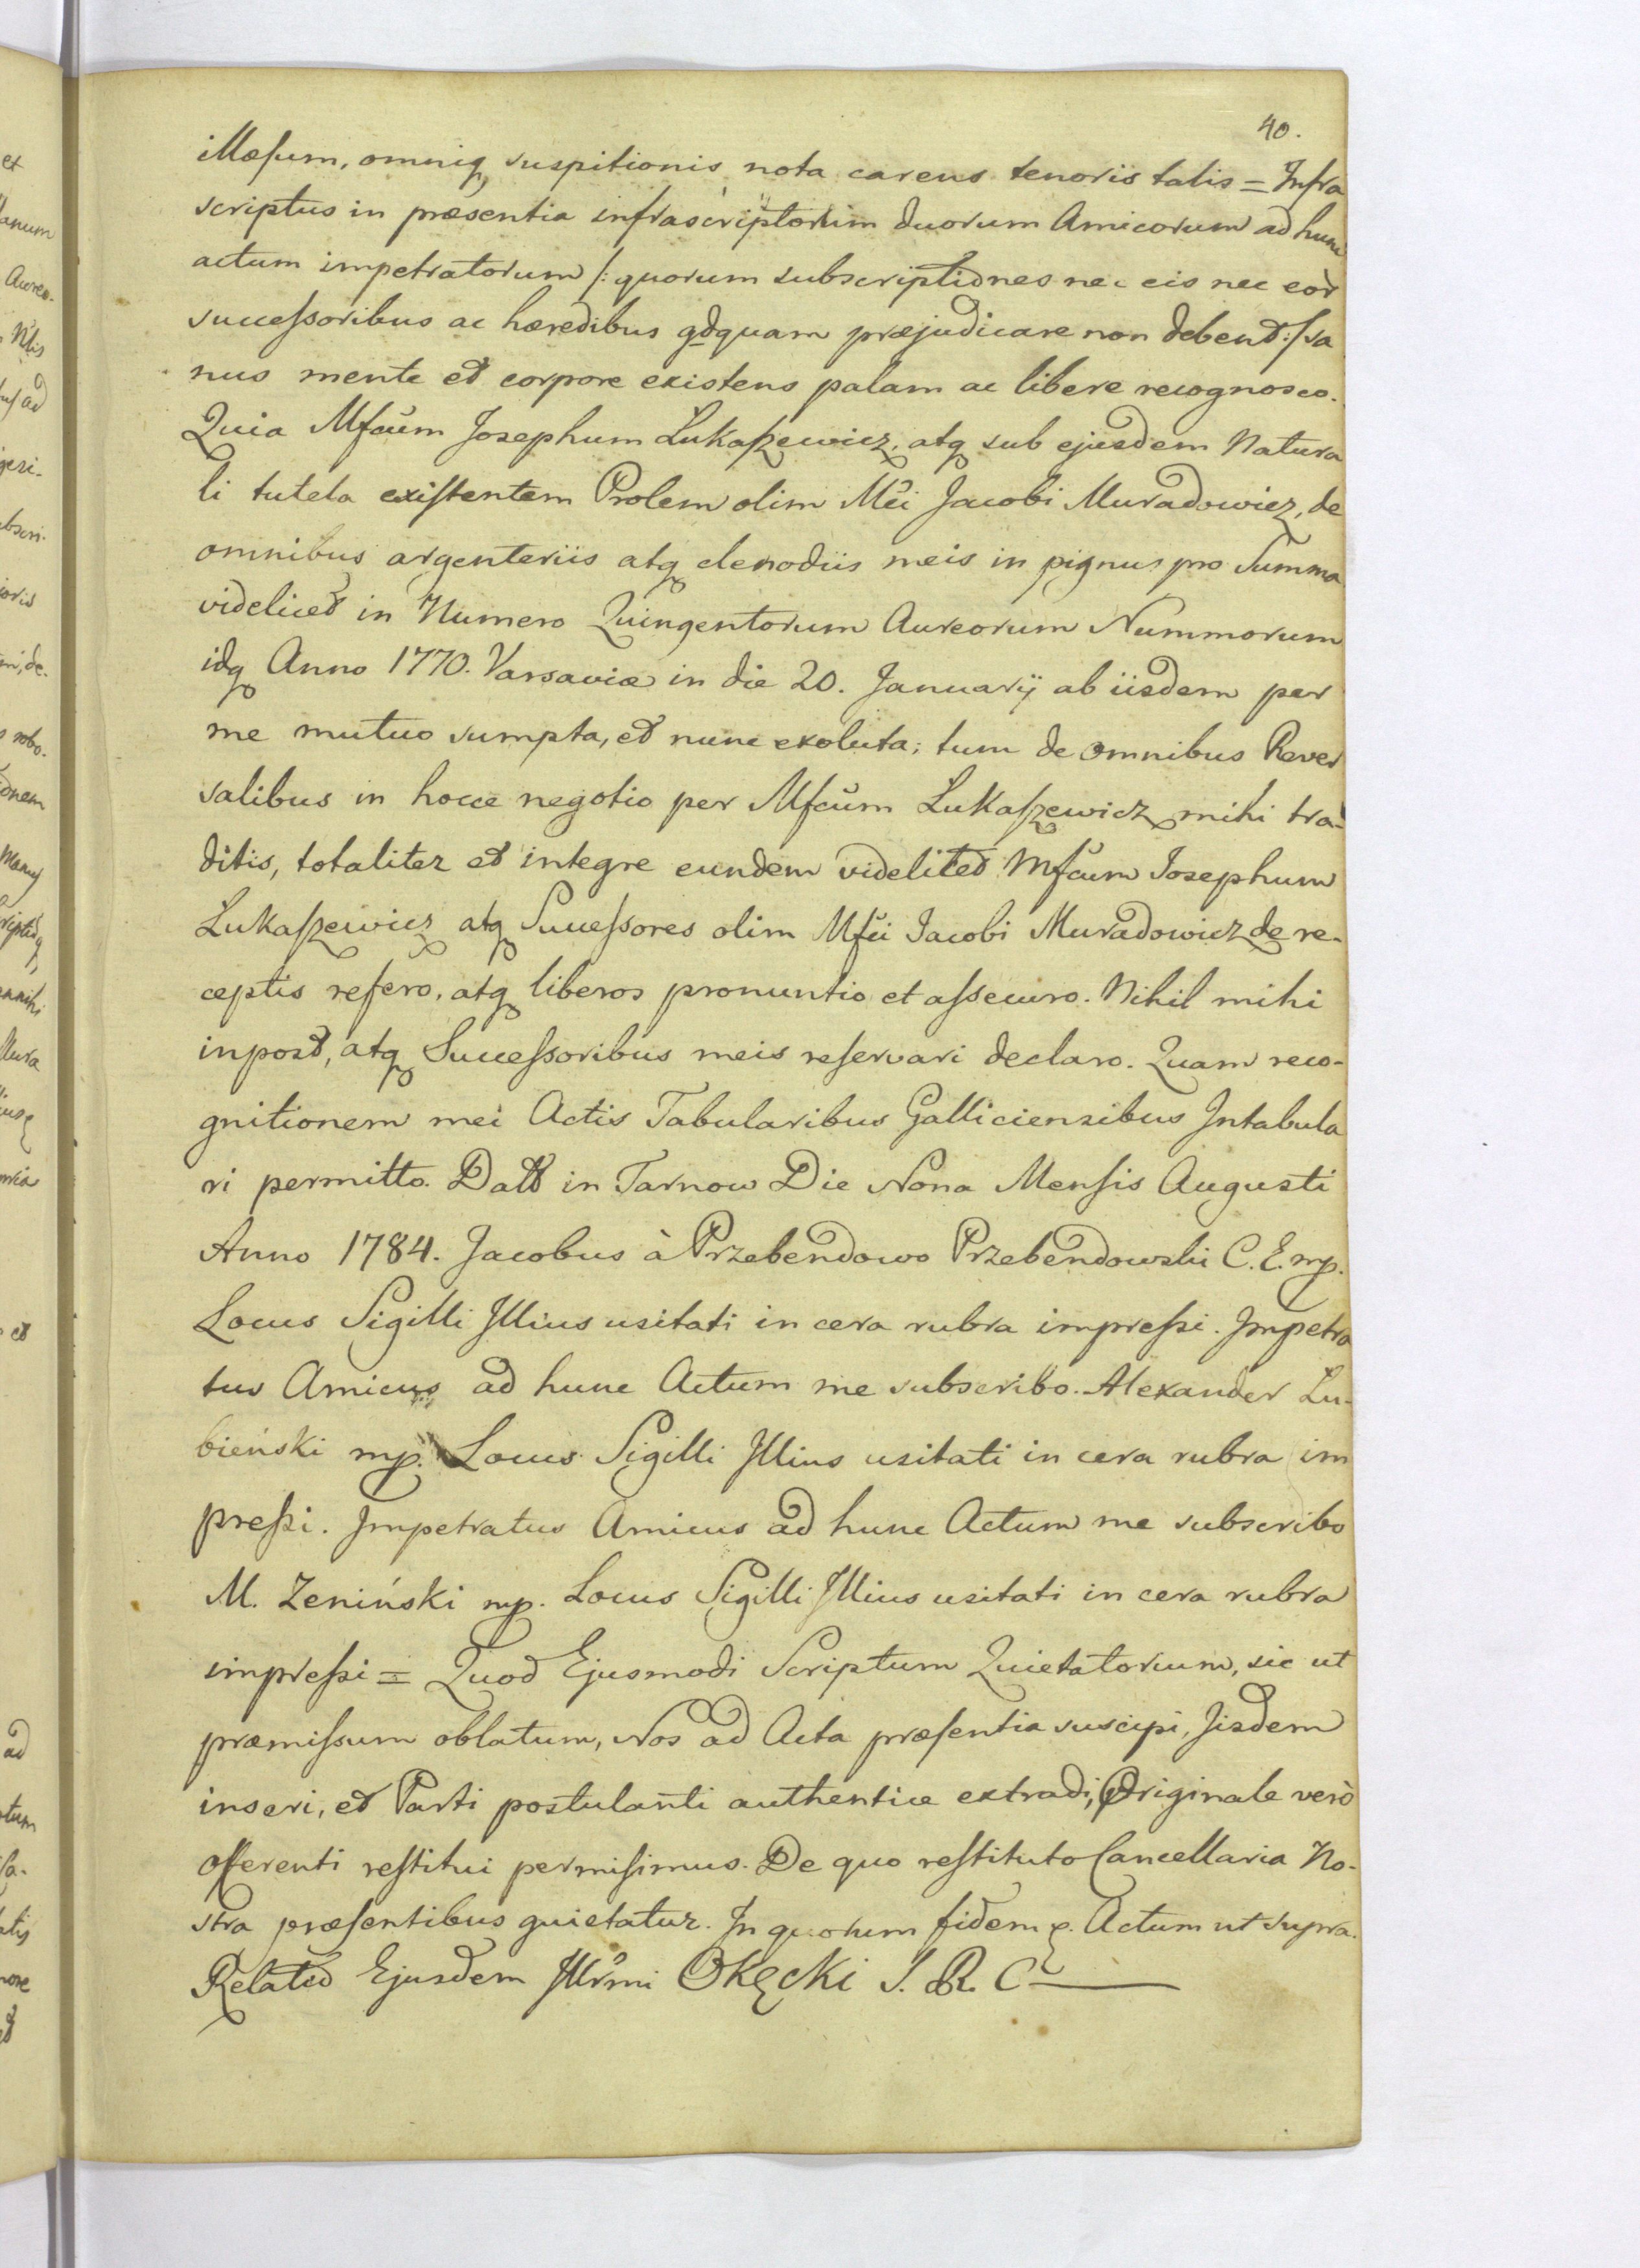 40.
illæsum, omniq suspitionis nota carens tenoris talis = Infra
scriptus in præsentia infrascriptorum duorum Amicorum ad hunc
actum impetratorum /: quorum subscriptiones nec eis nec eor
successoribus ac hæredibus qdquam præjudicare non debent :/ sa
nus mente et corpore existens palam ac libere recognosco.
Quia Mfcum Josephum Lukaszewicz, atq sub ejusdem Natura
li tutela existentem Prolem olim Mci Jacobi Muradowicz, de
omnibus argenteriis atq clenodiis meis in pignus pro Summa
videlicet in Numero Quingentorum Aureorum Nummorum
idq Anno 1770. Varsaviæ in die 20. Januarij ab iisdem per
me mutuo sumpta, et nunc exoluta; tum de omnibus Rever
salibus in hocce negotio per Mfcum Lukaszewicz mihi tra-
ditis, totaliter et integre eundem videlicet Mfcum Josephum
Lukaszewicz atq Successores olim Mfci Jacobi Muradowicz de re-
ceptis refero, atq liberos pronuntio et assecuro. Nihil mihi
inpost, atq Successoribus meis reservari declaro. Quam reco-
gnitionem mei Actis Tabularibus Galliciensibus Intabula
ri permitto. Datt in Tarnow Die Nona Mensis Augusti
Anno 1784. Jacobus à Przebendowo Przebendowski C. E. mp.
Locus Sigilli Illius usitati in cera rubra impressi. Impetra
tus Amicus ad hunc Actum me subscribo. Alexander Lu-
bieński mp. Locus Sigilli Illius usitati in cera rubra im
pressi. Impetratus Amicus ad hunc Actum me subscribo
M. Zeniński mp. Locus Sigilli Illius usitati in cera rubra
impressi = Quod Ejusmodi Scriptum Quietatorium, sic ut
præmissum oblatum, Nos ad Acta præsentia suscipi, Iisdem
inseri, et Parti postulanti authentice extradi, Originale verò
offerenti restitui permisimus. De quo restituto Cancellaria No-
stra præsentibus quietatur. In quorum fidem p. Actum ut supra.
Relatio Ejusdem Illrmi Okęcki S. R. C